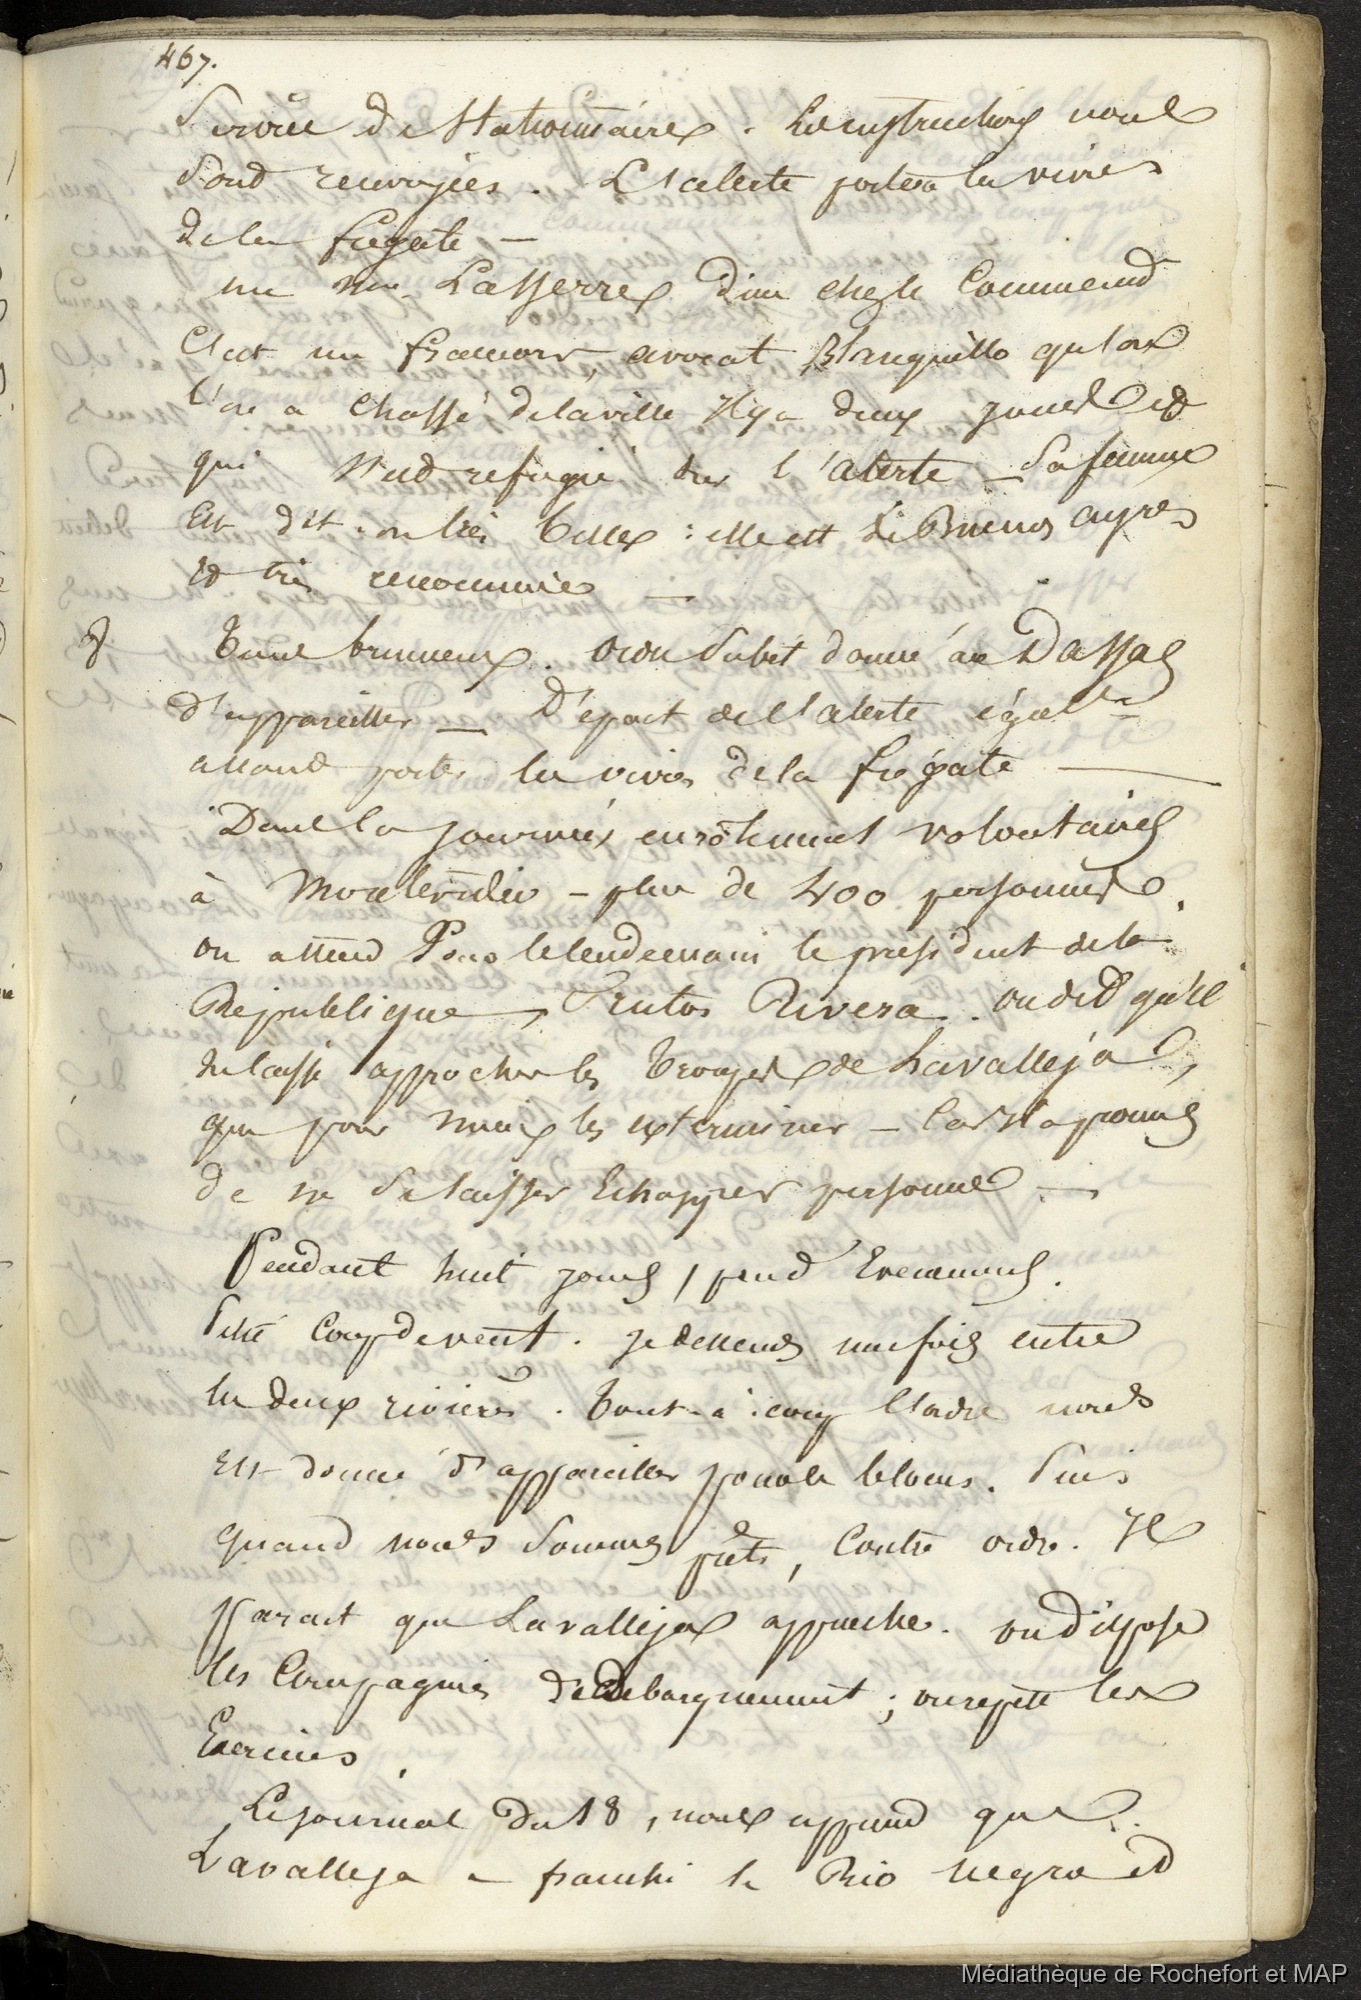 467.
Service de Stationnaire. Les instructions nous
sont renvoyées. L'alerte portera les vivres
de la frégate —
un Mr Lasserre dine chez le Command
C'est un francais, avocat Blanquillo que
l'on a chassé de la ville il y a deux jours et
qui s'est refugié sur l'alerte — Sa femme
Est dit-on très belle : elle est de Buenos ayres
et très renommée —
8 Tems brumeux. Ordre subit donné au Dassas
d'appareiller — Départ de l'alerte égalt
allant porter les vivres de la frégate —
Dans la journée, enrôlement volontaires
à Montevideo — plus de 400 personnes.
on attend Pour le lendemain le président de la
République, Frutos Rivera. on dit qu'il
ne laisse approcher les troupes de Lavalleja,
que pour mieux les exterminer — Car il a promis
de ne laisser Echapper personne —
Pendant huit jours, peu d'Evenemens.
Petit coup de vent. je descends une fois entre
les deux rivières. Tout-à-coup l'ordre nous
Est donné d'appareiller pour le blocus. Puis
quand nous sommes prêts, Contre ordre. Il
parait que Lavalleja approche. on dispose
les Compagnies de debarquement ; on repète les
Exercices.
Le journal du 18, nous apprend que
Lavalleja a franchi le Rio Negro et
Médiathèque de Rochefort et MAP